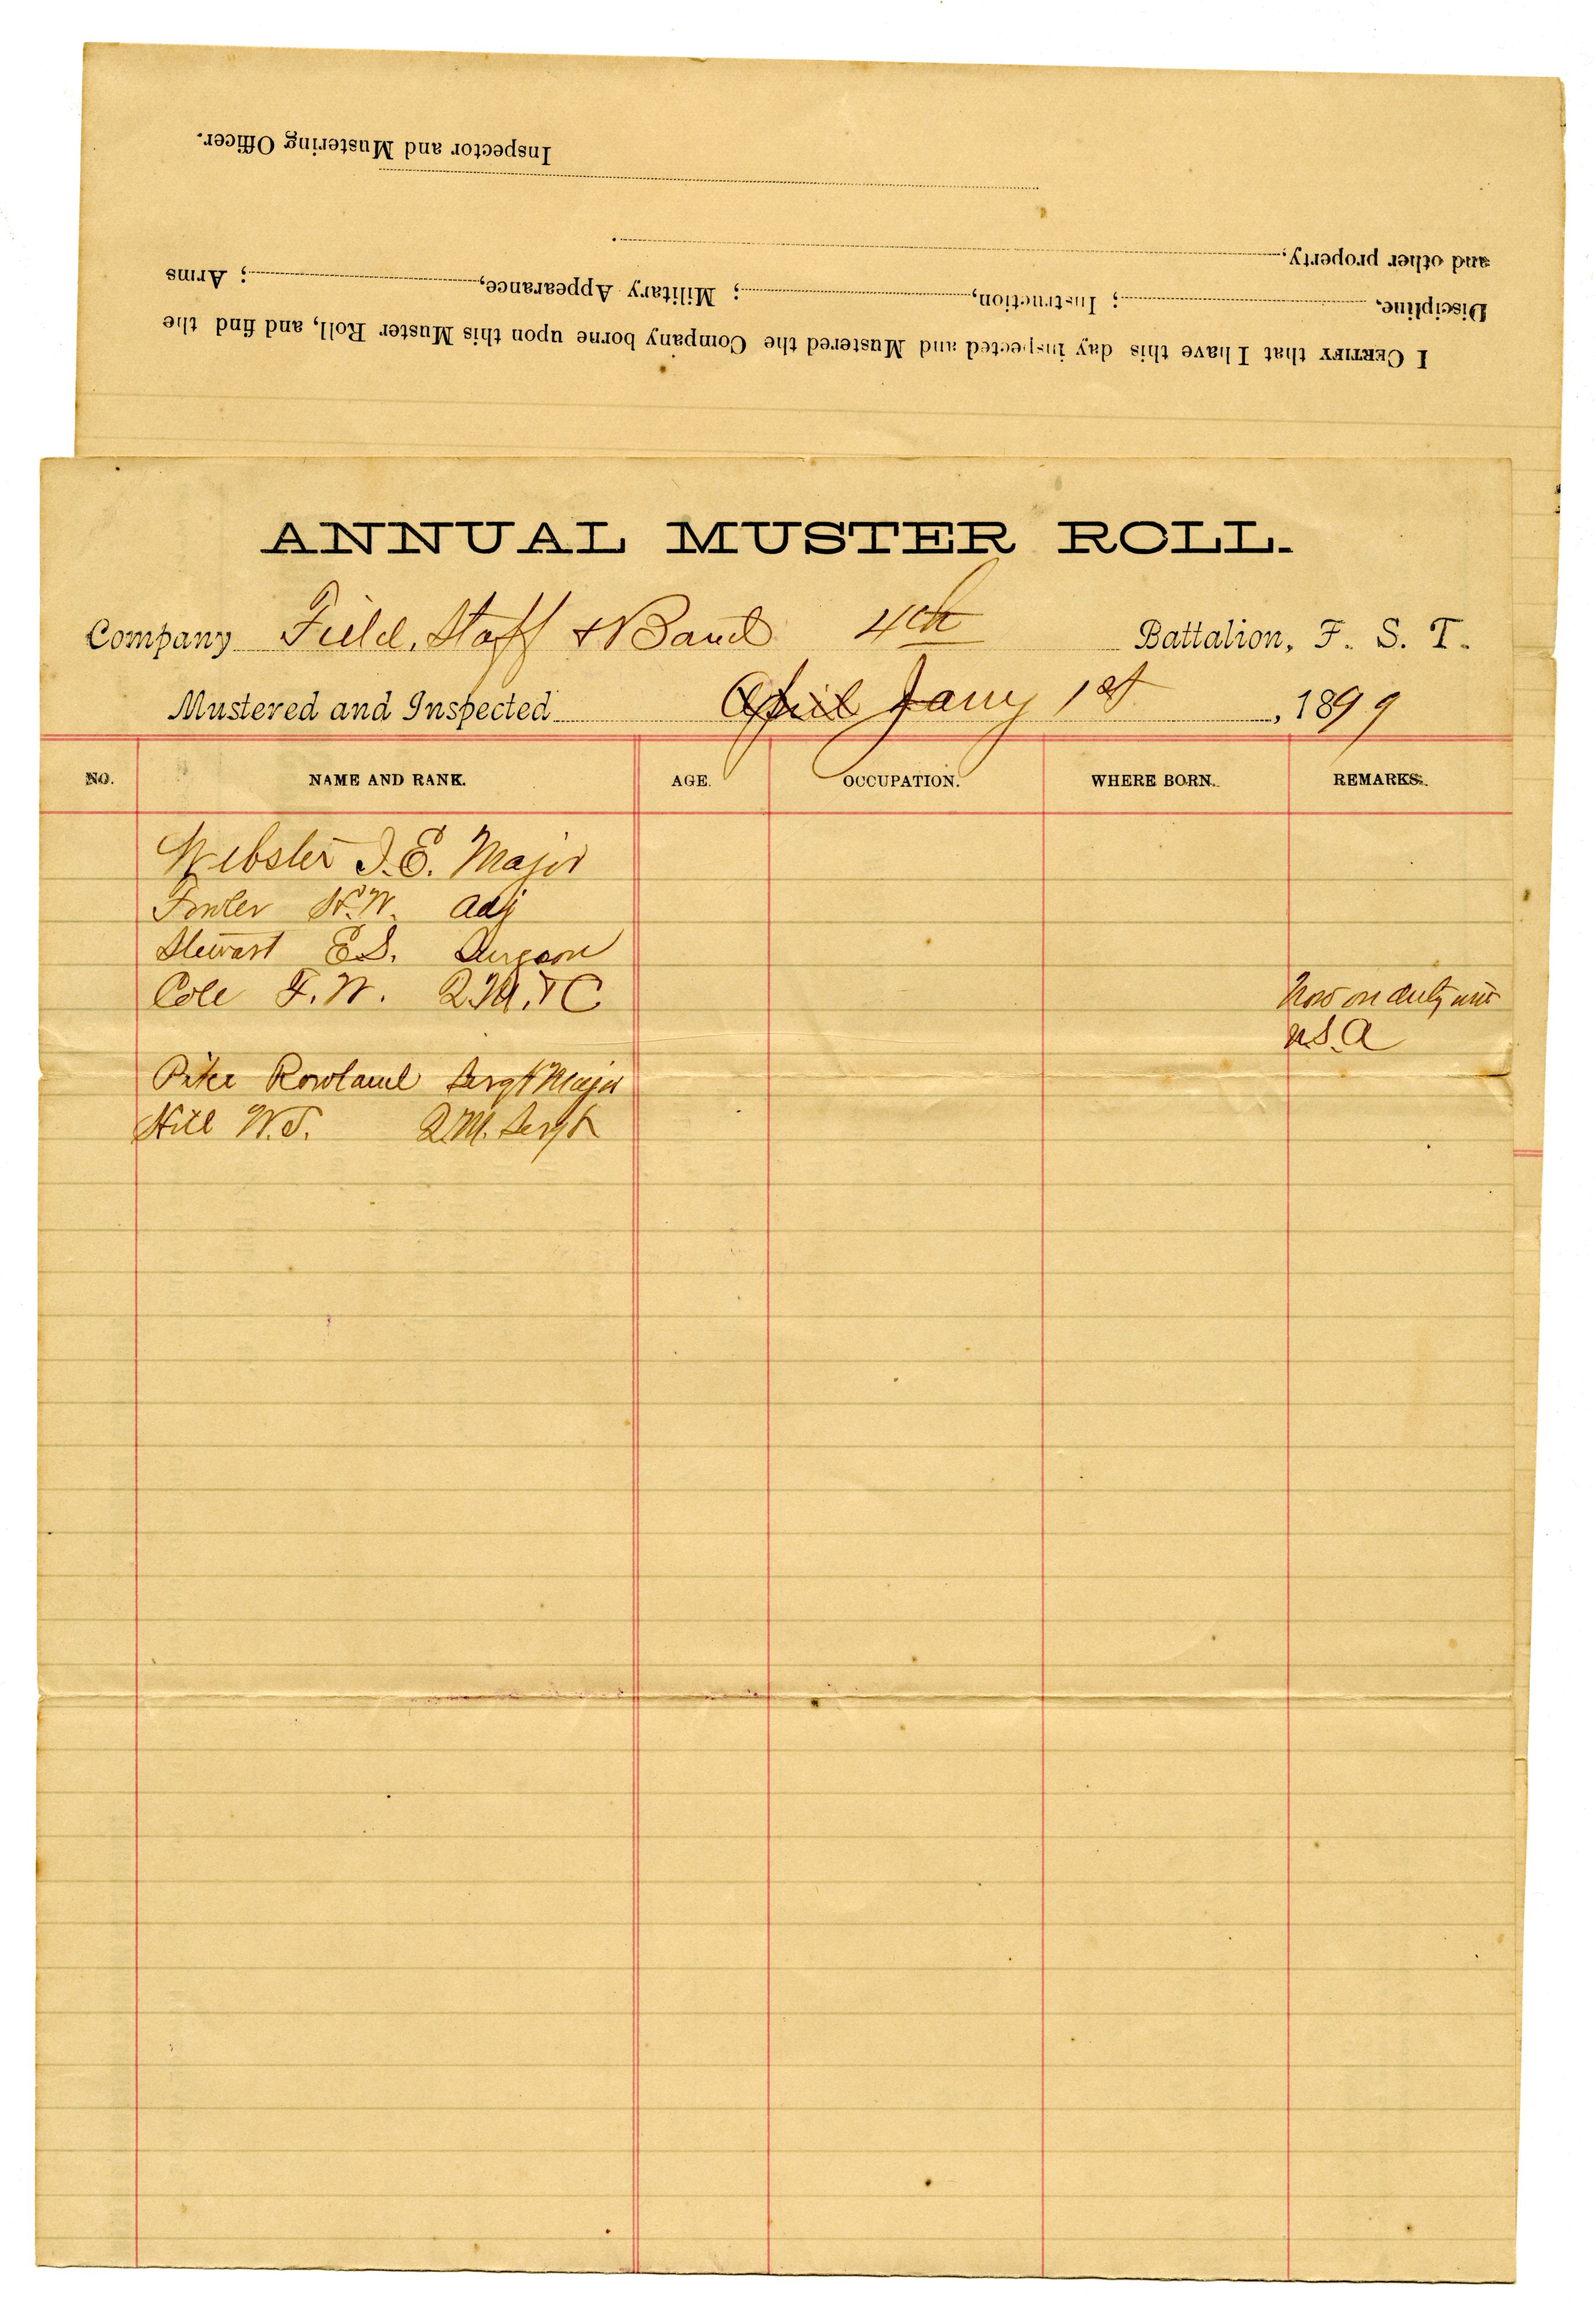 Inspector and Mustering Officer.
and other property,
Discipline, ; Instruction, ; Military Appearance, ; Arms
I CERTIFY that I have this day inspected and Mustered the Company borne upon this Muster Roll, and find the
ANNUAL MUSTER ROLL.
Company Field, Staff & Band 4th Battalion, F. S. T.
Mustered and Inspected April Jany 1st, 1899
NO. NAME AND RANK. AGE. OCCUPATION. WHERE BORN. REMARKS.
Webster I. E. Major
Fowler H. W. Adj
Stewart E S. Surgeon
Cole F. W. Q. M. & C Now on duty with
U.S.A
Rowland Sergt Major
Hill W. J. Q.M. Sergt